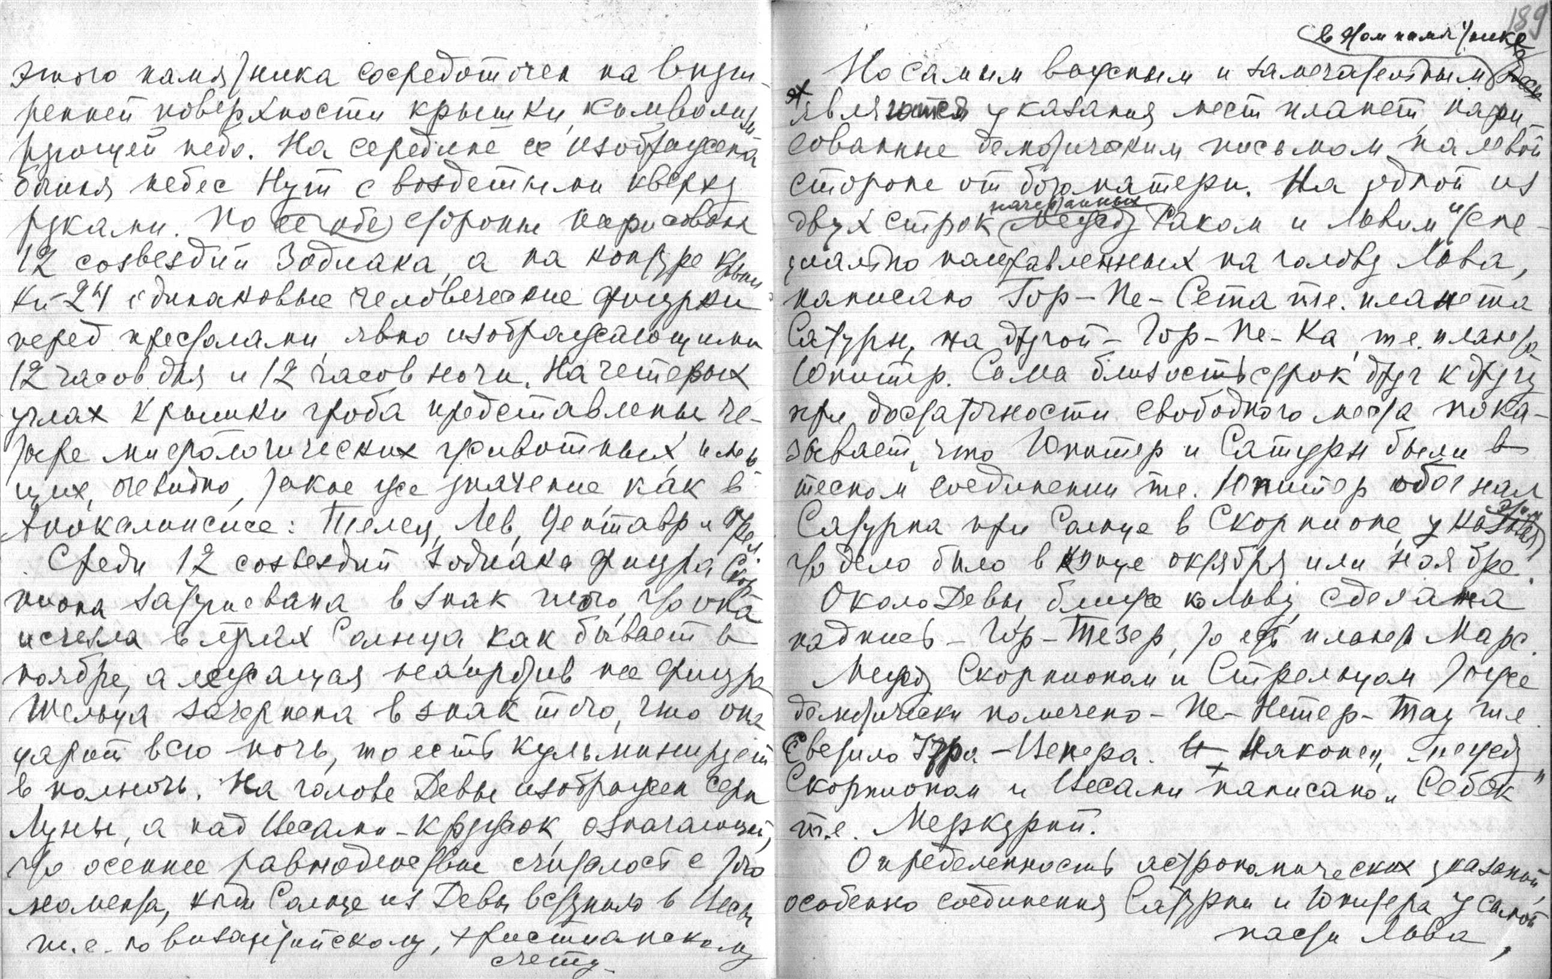 этого памятника сосредоточен на внут-
ренней поверхности крышки, символизи
рующей небо. На середине ее изображена
богиня небес Нут с воздетыми кверху
руками. По ее обе стороны нарисованы
12 созвездий Зодиака, а на контуре крыш
ки – 24 одинаковые человеческие фигурки
перед престолами, явно изображающими
12 часов дня и 12 часов ночи. На четырех
углах крышки гроба представлены че-
тыре мифологических животных, имею
щих, очевидно, такое же значение как в
Апокалипсисе: Телец, Лев, Центавр и Орел.
Среди 12 созвездий Зодиака фигура Скор
пиона затушевана в знак того, что она
исчезла в лучах Солнца как бывает в
ноябре, а лежащая напротив нее фигура
Тельца зачернена в знак того, что она
царит всю ночь, то есть кульминирует
в полночь. На голове Девы изображен серп
Луны, а над Весами – кружок, означающий,
что осеннее равноденствие считалось с того
момента, когда Солнце из Девы вступило в Весы,
т.е. по византийскому, христианскому
счету.
189
в этом памятнике
Но самым важным и замечательным
является указания мест планет, нари-
сованные демотическим письмом на левой
стороне от богоматери. На одной из
двух строк начертанных между Раком и Львом и спе-
циально направленных на голову Льва,
написано Гор-Пе-Сета т.е. планета
Сатурн, на другой – Гор-Пе-Ка, т.е. планета
Юпитер. Сама близость строк друг к другу
при достаточности свободного места пока-
зывает, что Юпитер и Сатурн были в
тесном соединении т.е. Юпитер обогнал
Сатурна при Солнце в Скорпионе, указывая
что дело было в конце октября или ноябре.
Около Девы ближе ко Льву сделана
надпись – Гор-Тезер, то есть планета Марс.
Между Скорпионом и Стрельцом тоже
демотически помечено – Пе-Нетер-Тау т.е.
Светило Утра – Венера. И наконец, между
Скорпионом и Весами написано „Себек"
т.е. Меркурий.
Определенность астрономических указаний,
особенно соединения Сатурна и Юпитера у самой
пасти Льва,